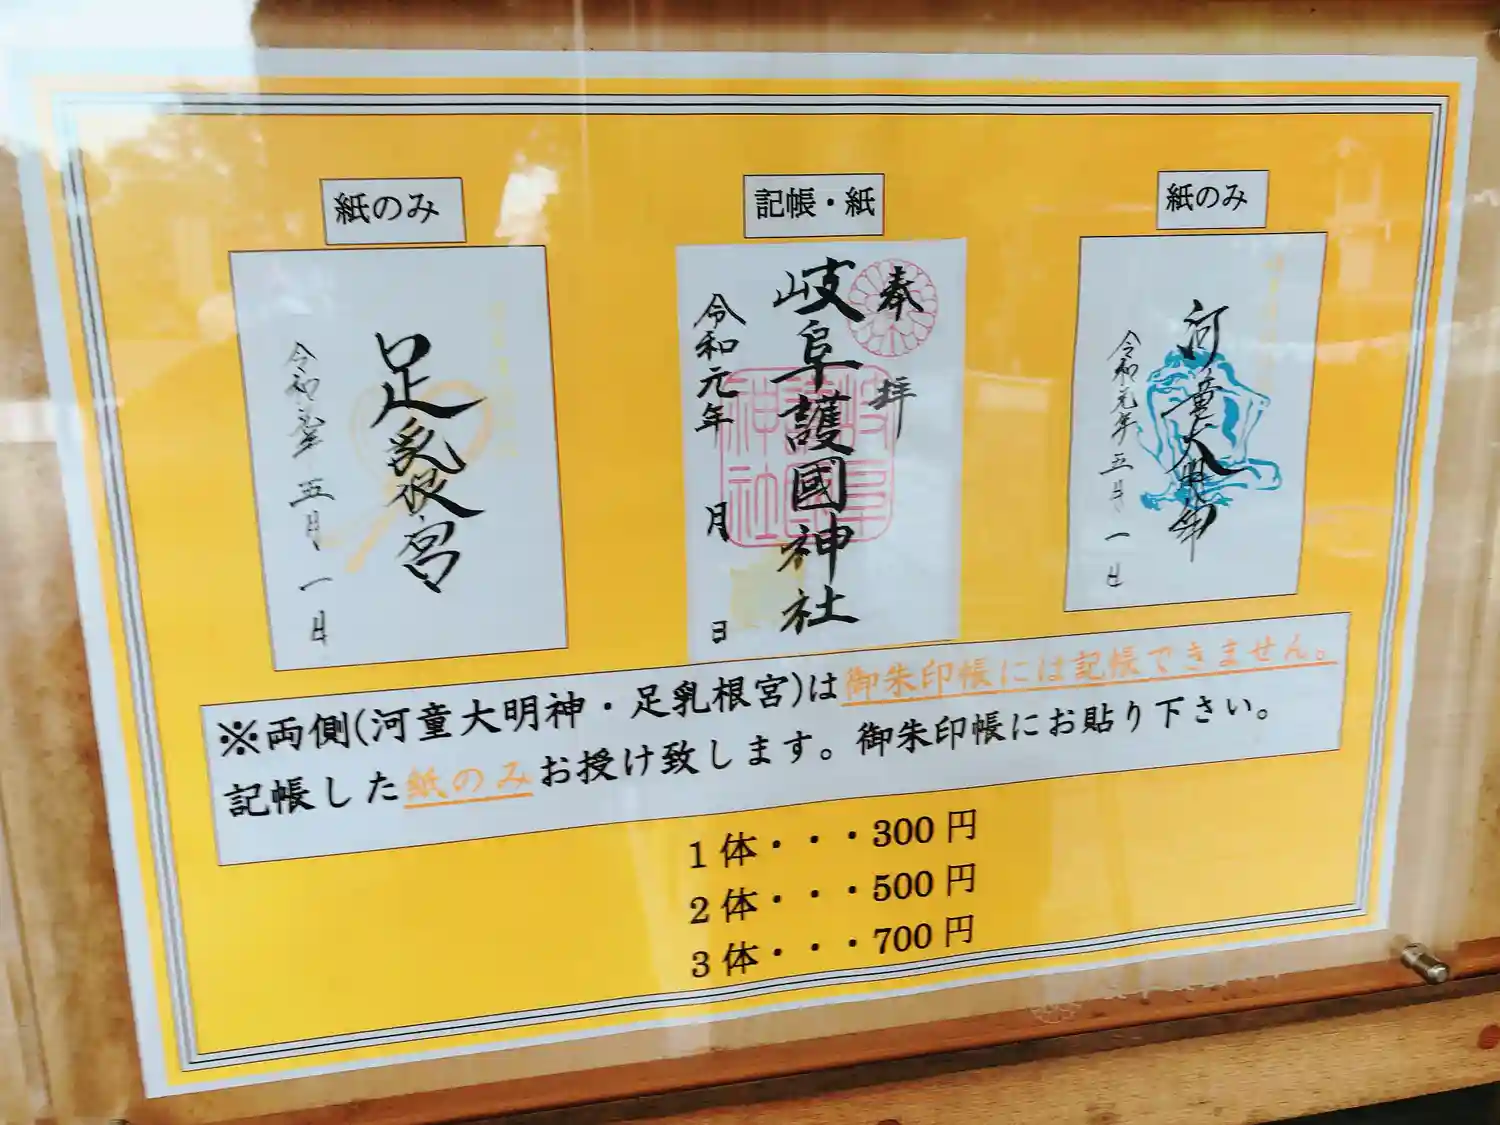 紙のみ
足乳根宮
令和元年 五月 一日
記帳・紙
奉拝
岐阜護國神社
令和元年 月 日
紙のみ
河童大明神
令和元年 五月 一日
※両側(河童大明神・足乳根宮)は御朱印帳には記帳できません。
記帳した紙のみお授け致します。御朱印帳にお貼り下さい。
1体・・・300円
2体・・・500円
3体・・・700円